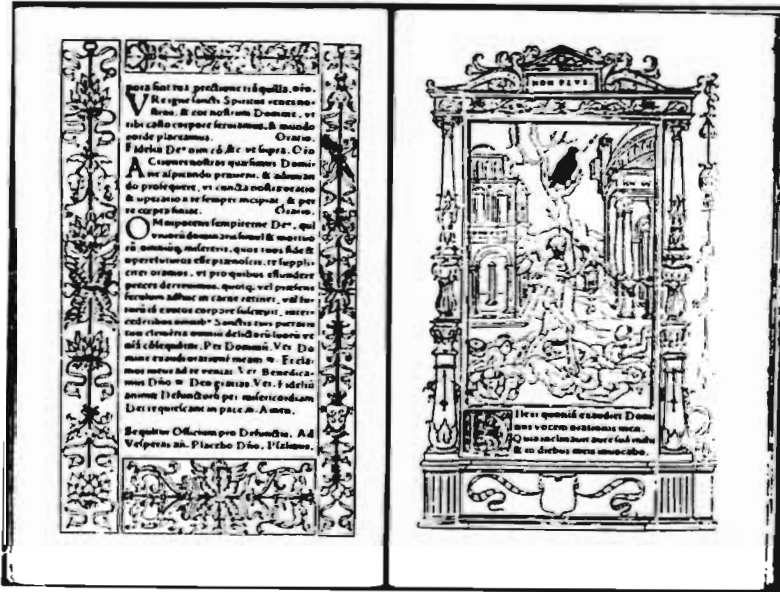 VRe igne sancti Spiritus renes no-
stros, & cor nostrum Domine, vt
tibi casto corpore seruiamus, & mundo
corde placeamus. Oratio.
&c vt supra. Oro
ACtiones nostras quæsumus Domi
ne aspirando præueni, & adiuuan
do prosequere, vt cuncta nostra oratio
& operatio a te semper incipiat, & per
te cœpta finiat. Oratio.
OMnipotens sempiterne De⁹, qui
dominaris simul & mortuo
misereris, quos tuos fide &
opere futuros esse prænoscis, te suppli
citer oramus, vt pro quibus effundere
preces decreuimus, quosq; vel præsens
seculum adhuc in carne retinet, vel fu
Sanctis tuis pietatis
Per Dominũ. Ver. Do
mine exaudi orationẽ meam. Et cla
mor meus ad te veniat. Ver. Benedica
mus Dño. Deo gratias. Ver. Fideliũ
animæ Defunctorũ per misericordiam
Dei requiescant in pace. Amen.
Sequitur Officium pro Defunctis. Ad
Vesperas añ. Placebo Dño. Psalmus.
NON PLVS
Ilexi quoniã exaudiet Domi
nus vocem orationis meæ.
Quia inclinauit aurẽ suã mihi
& in diebus meis inuocabo.